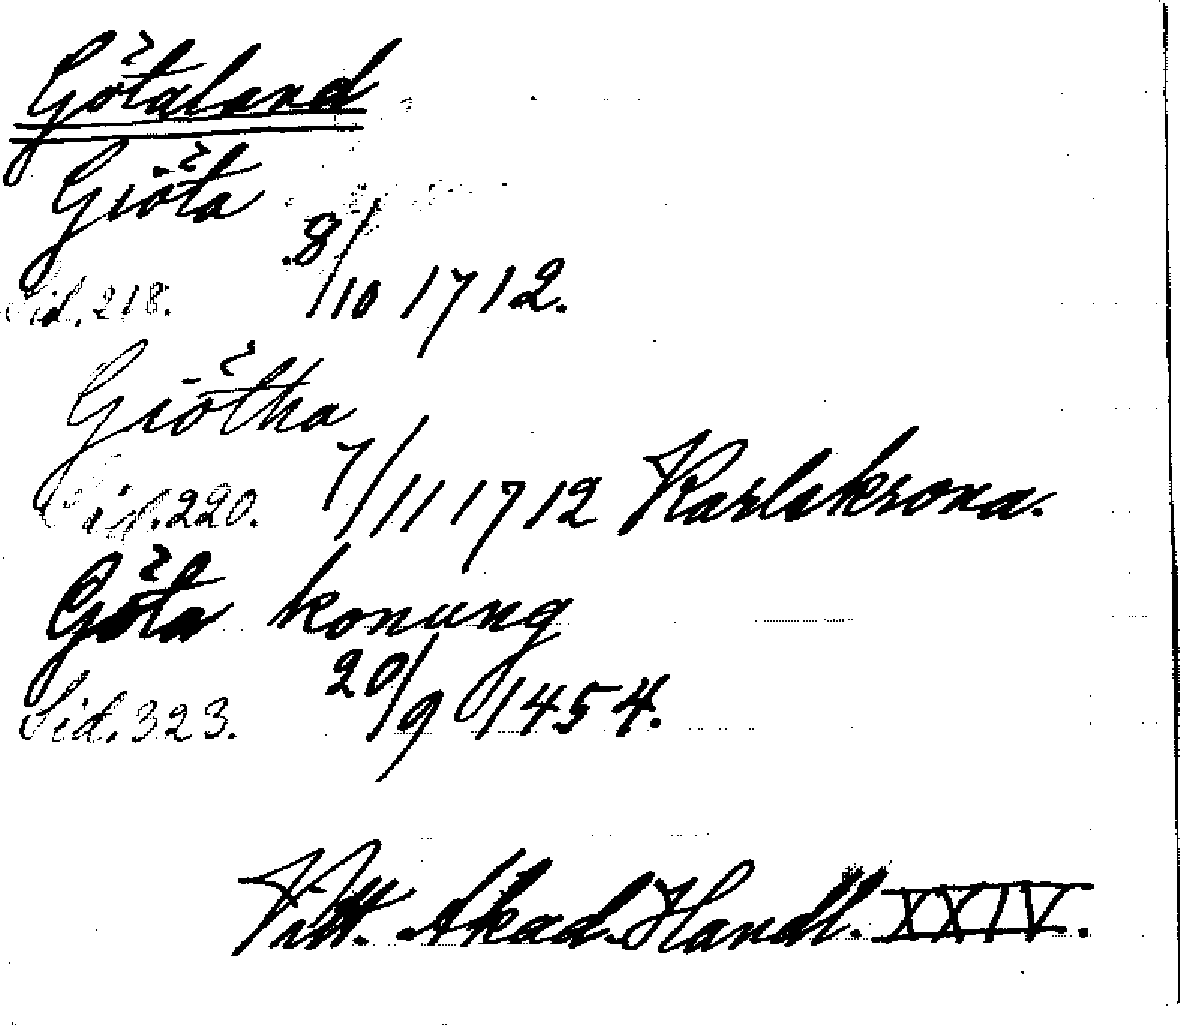 Götaland
Giöta
Sid. 218. 8/10 1712.
Giötha
Sid. 220. 7/11 1712 Karlskrona.
Göta konung
Sid. 323. 20/9 1454.
Vitt. Akad. Handl. XXIV.